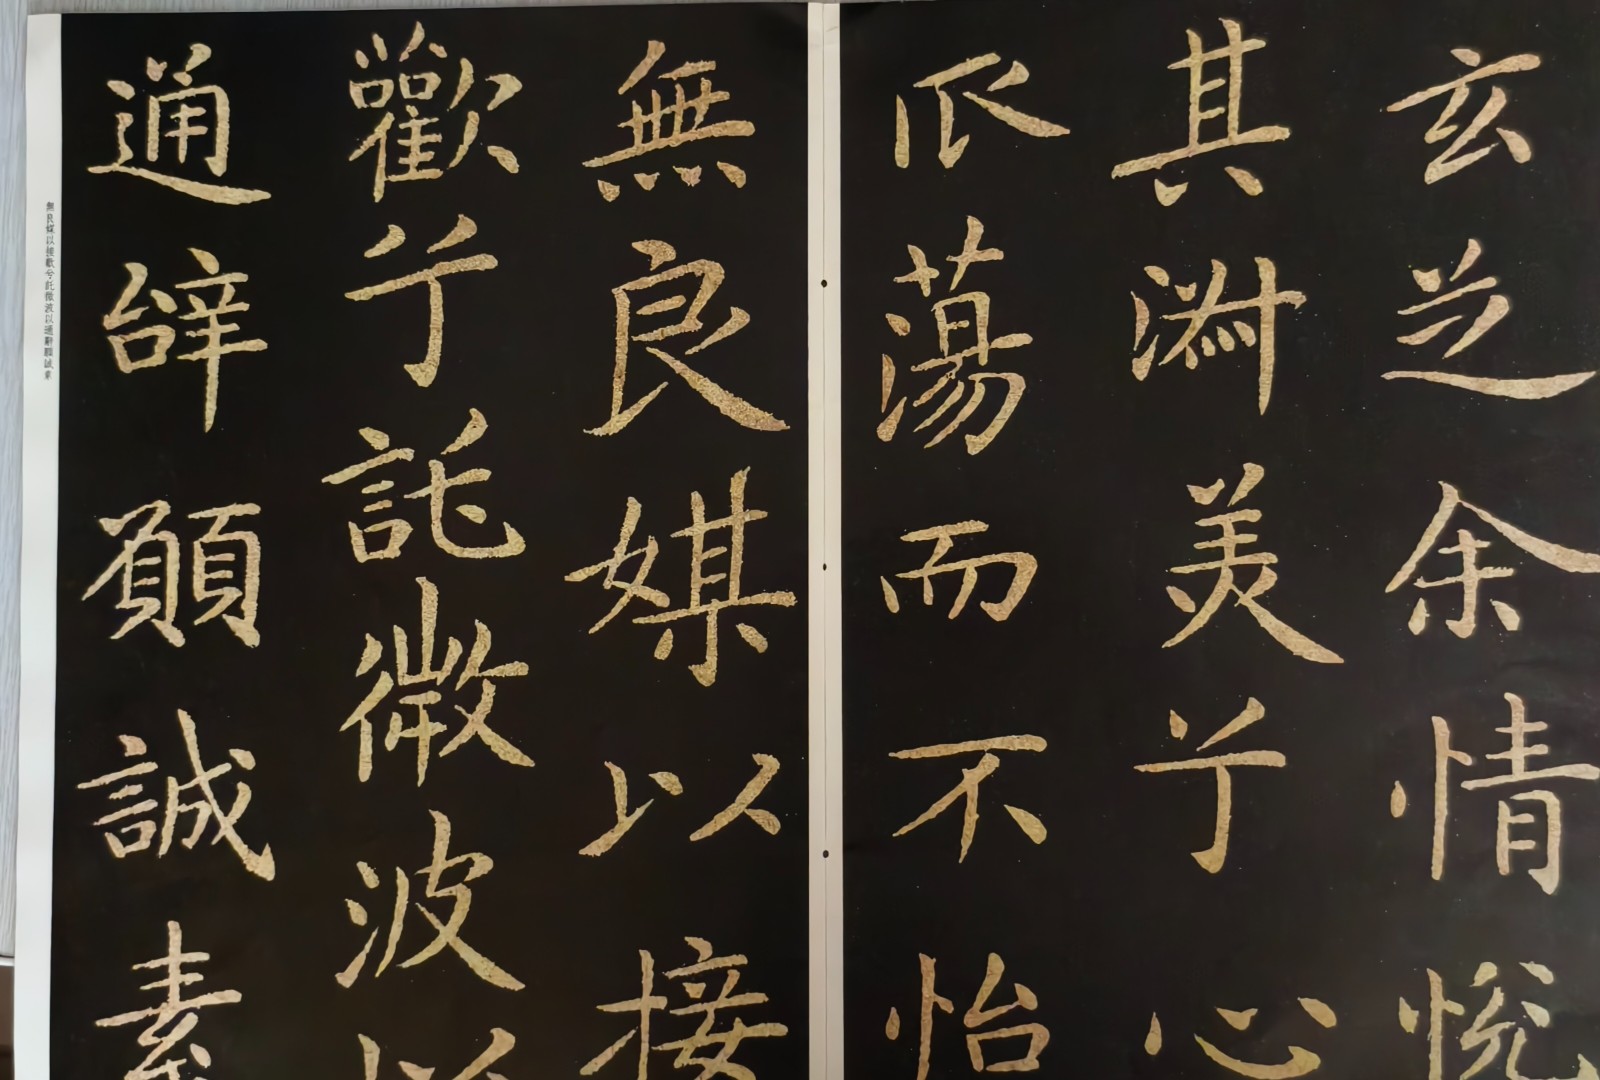 玄芝余情悅
其淵美兮心
爪蕩而不怡
無良媒以接
歡兮託微波以
通辭願誠素
無良媒以接歡兮託微波以通辭願誠素